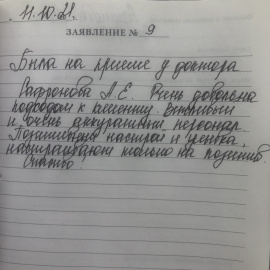 11.10.21.
ЗАЯВЛЕНИЕ № 9
Была на приеме у доктора
Сафронова А.Е. Очень довольна
подходом к лечению. Вежливый
и очень аккуратный персонал.
Позитивный настрой и улыбка,
настраивают только на позитив
Спасибо!